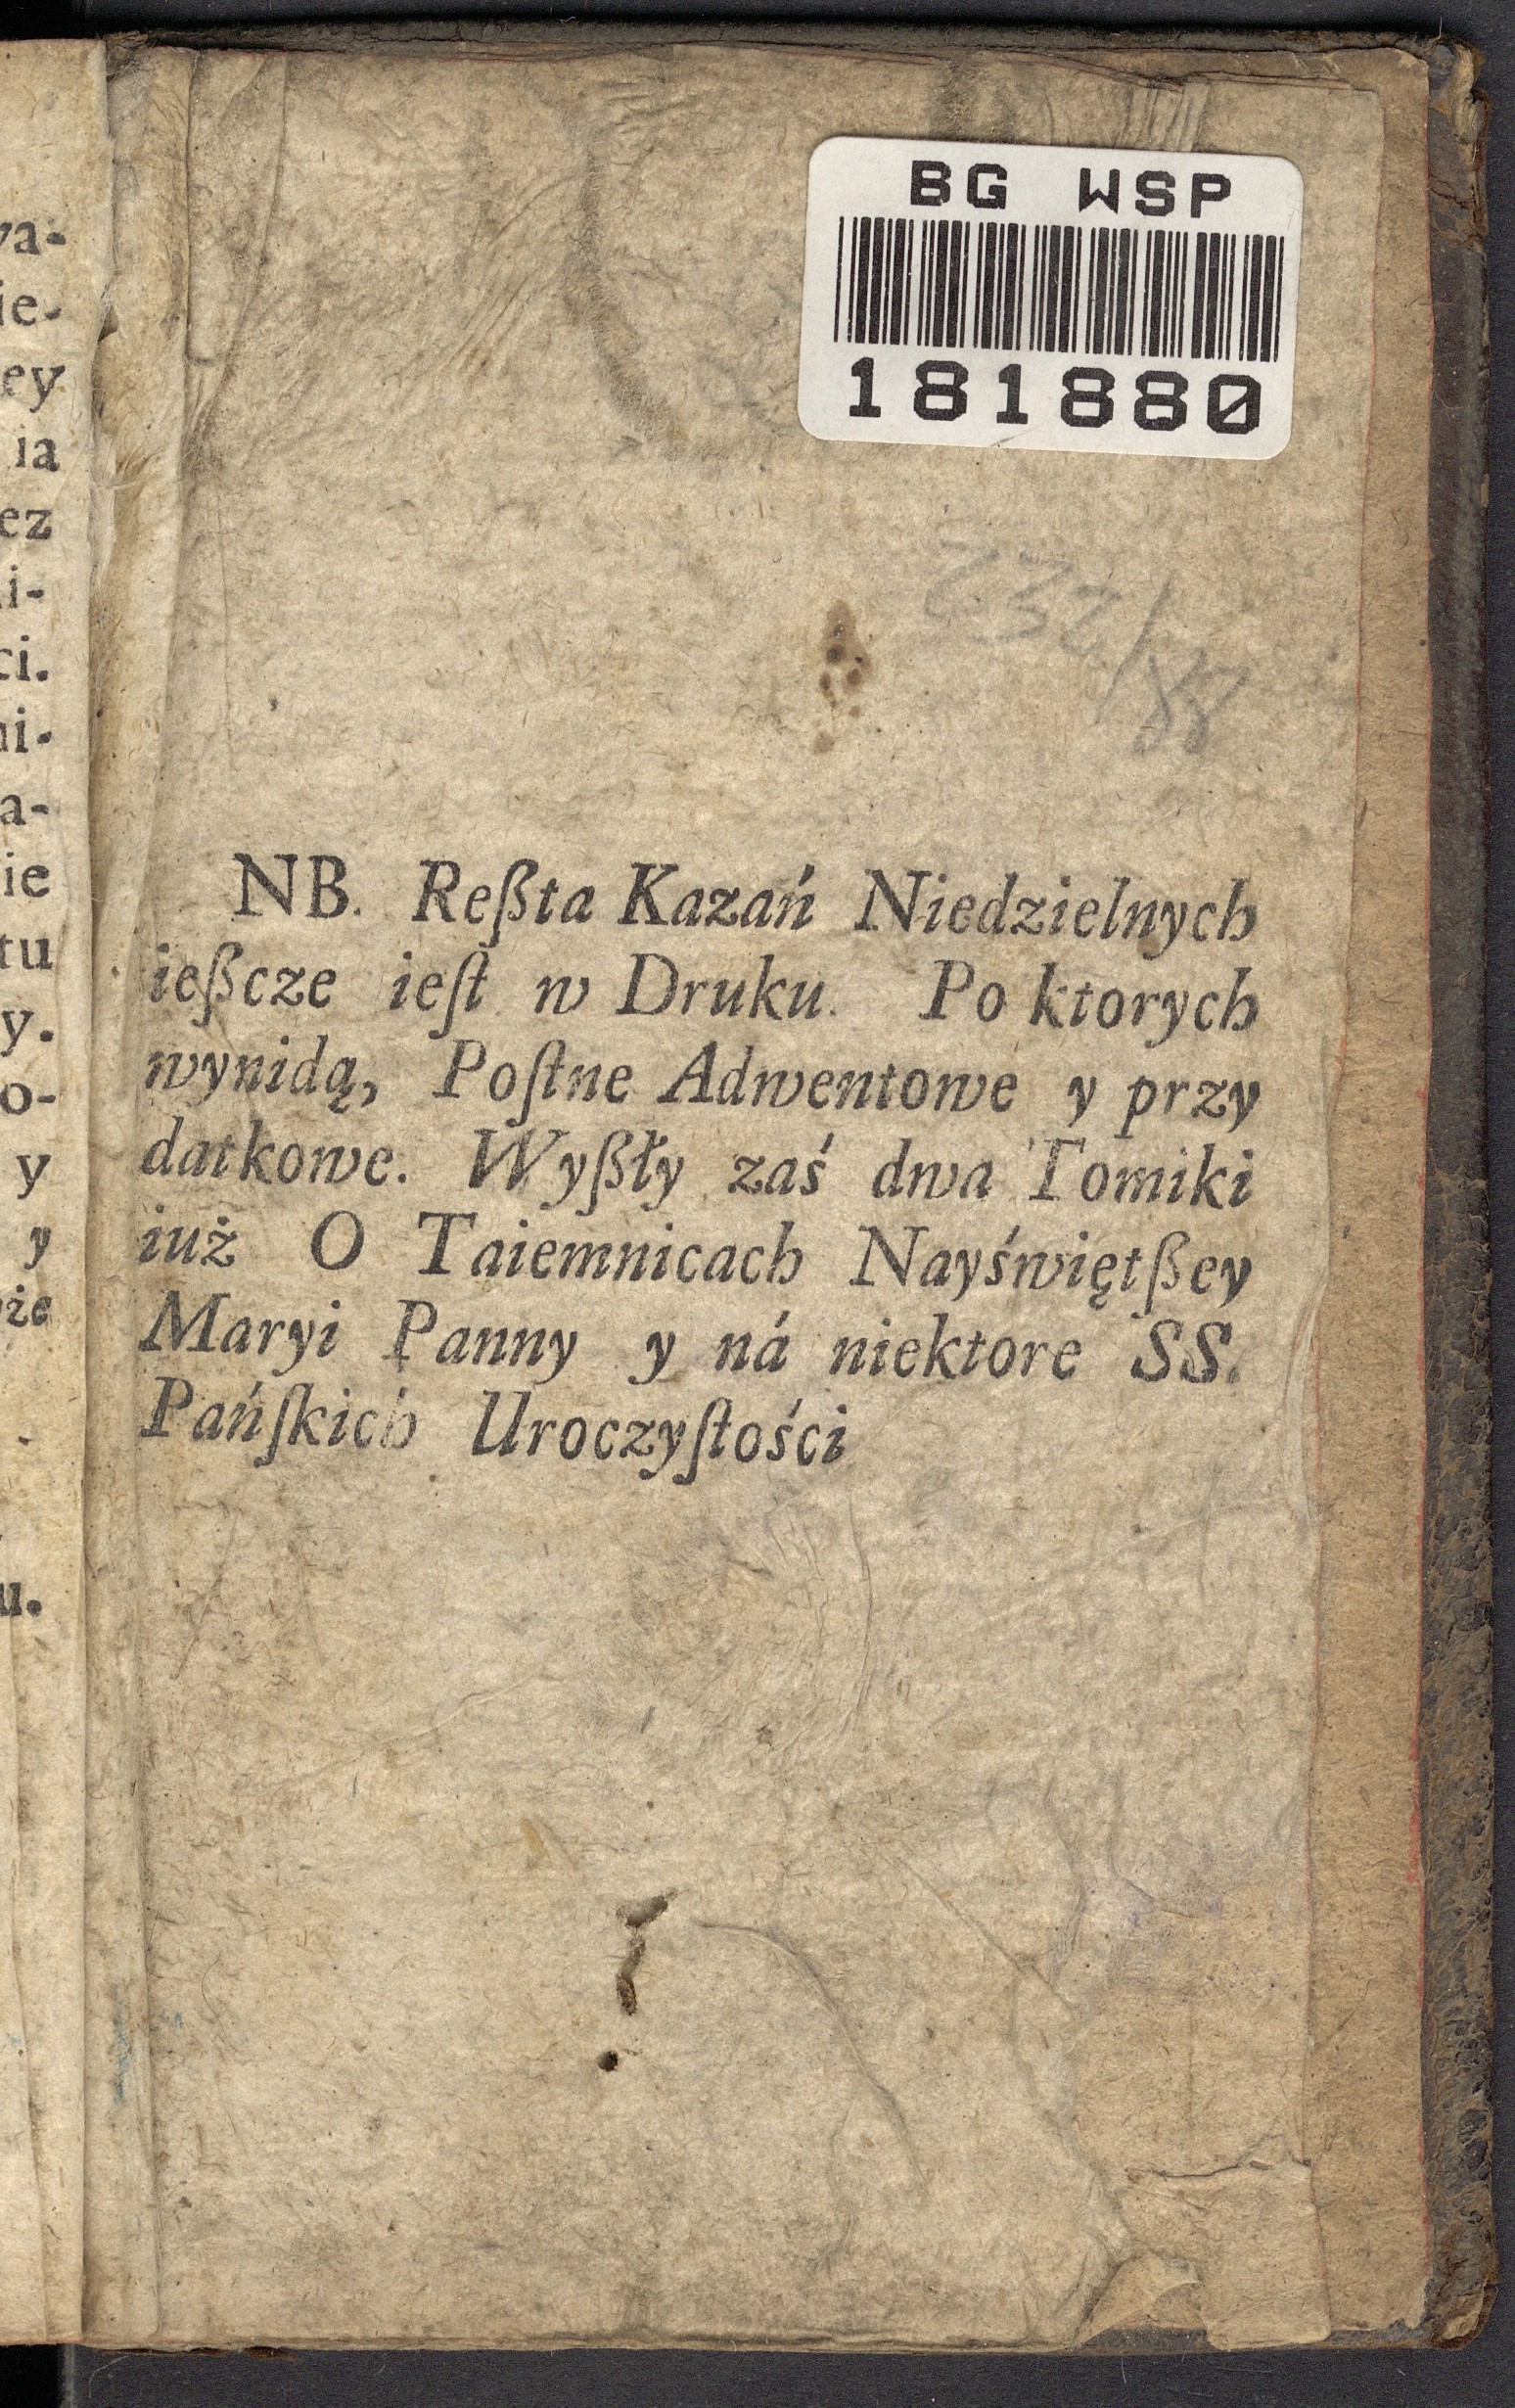 BG WSP
181880
232/88
NB. Reßta Kazań Niedzielnych
ießcze ieſt w Druku. Po ktorych
wynidą, Poſtne Adwentowe y przy
datkowe. Wyßły zaś dwa Tomiki
iuż O Taiemnicach Nayświętßey
Maryi Panny y ná niektore SS.
Pańſkich Uroczyſtości